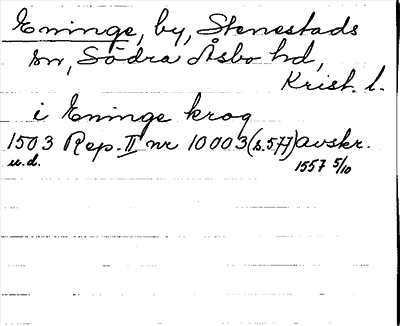 Eninge, by, Stenestads
sn, Södra Åsbo hd,
Krist. l.
i Eninge krog
1503 Rep. II nr 10003 (s. 577) avskr.
u.d. 1557 5/10